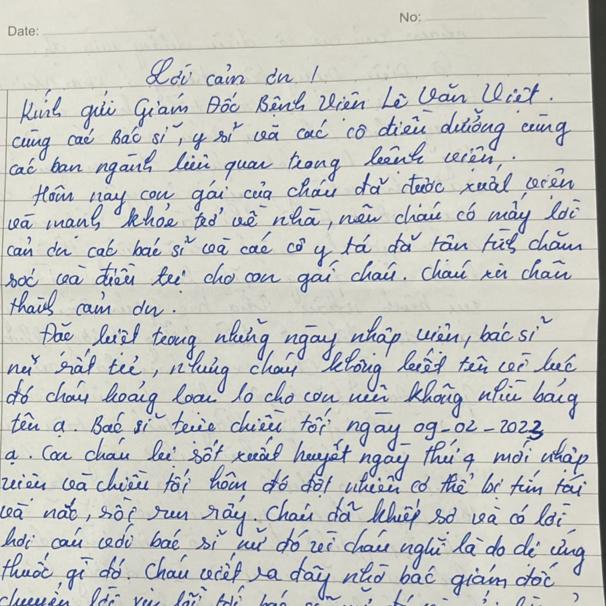 Date:
No:
Lời cảm ơn !
Kính gửi Giám Đốc Bệnh Viện Lê Văn Việt.
cùng các Bác sĩ, y sĩ và các cô điều dưỡng cùng
các ban ngành liên quan trong bệnh viện.
Hôm nay con gái của cháu đã được xuất viện
và mạnh khỏe trở về nhà, nên cháu có mấy lời
cảm ơn các bác sĩ và các cô y tá đã tận tình chăm
sóc và điều trị cho con gái cháu. Cháu xin chân
thành cảm ơn.
Đặc biệt trong những ngày nhập viện, bác sĩ
nữ rất trẻ, nhưng cháu không biết tên vì lúc
đó cháu hoảng loạn lo cho con nên không nhìn bảng
tên ạ. Bác sĩ trực chiều tối ngày 09-02-2023
ạ. Con cháu bị sốt xuất huyết ngày thứ 4 mới nhập
viện và chiều tối hôm đó đột nhiên cơ thể bị tím tái
và nấc, rồi run rẩy. Cháu đã khiếp sợ và có lời
hơi cáu với bác sĩ nữ đó vì cháu nghĩ là do dị ứng
thuốc gì đó. Cháu viết ra đây nhờ bác giám đốc
chuyển lời xin lỗi tới bác sĩ nữ